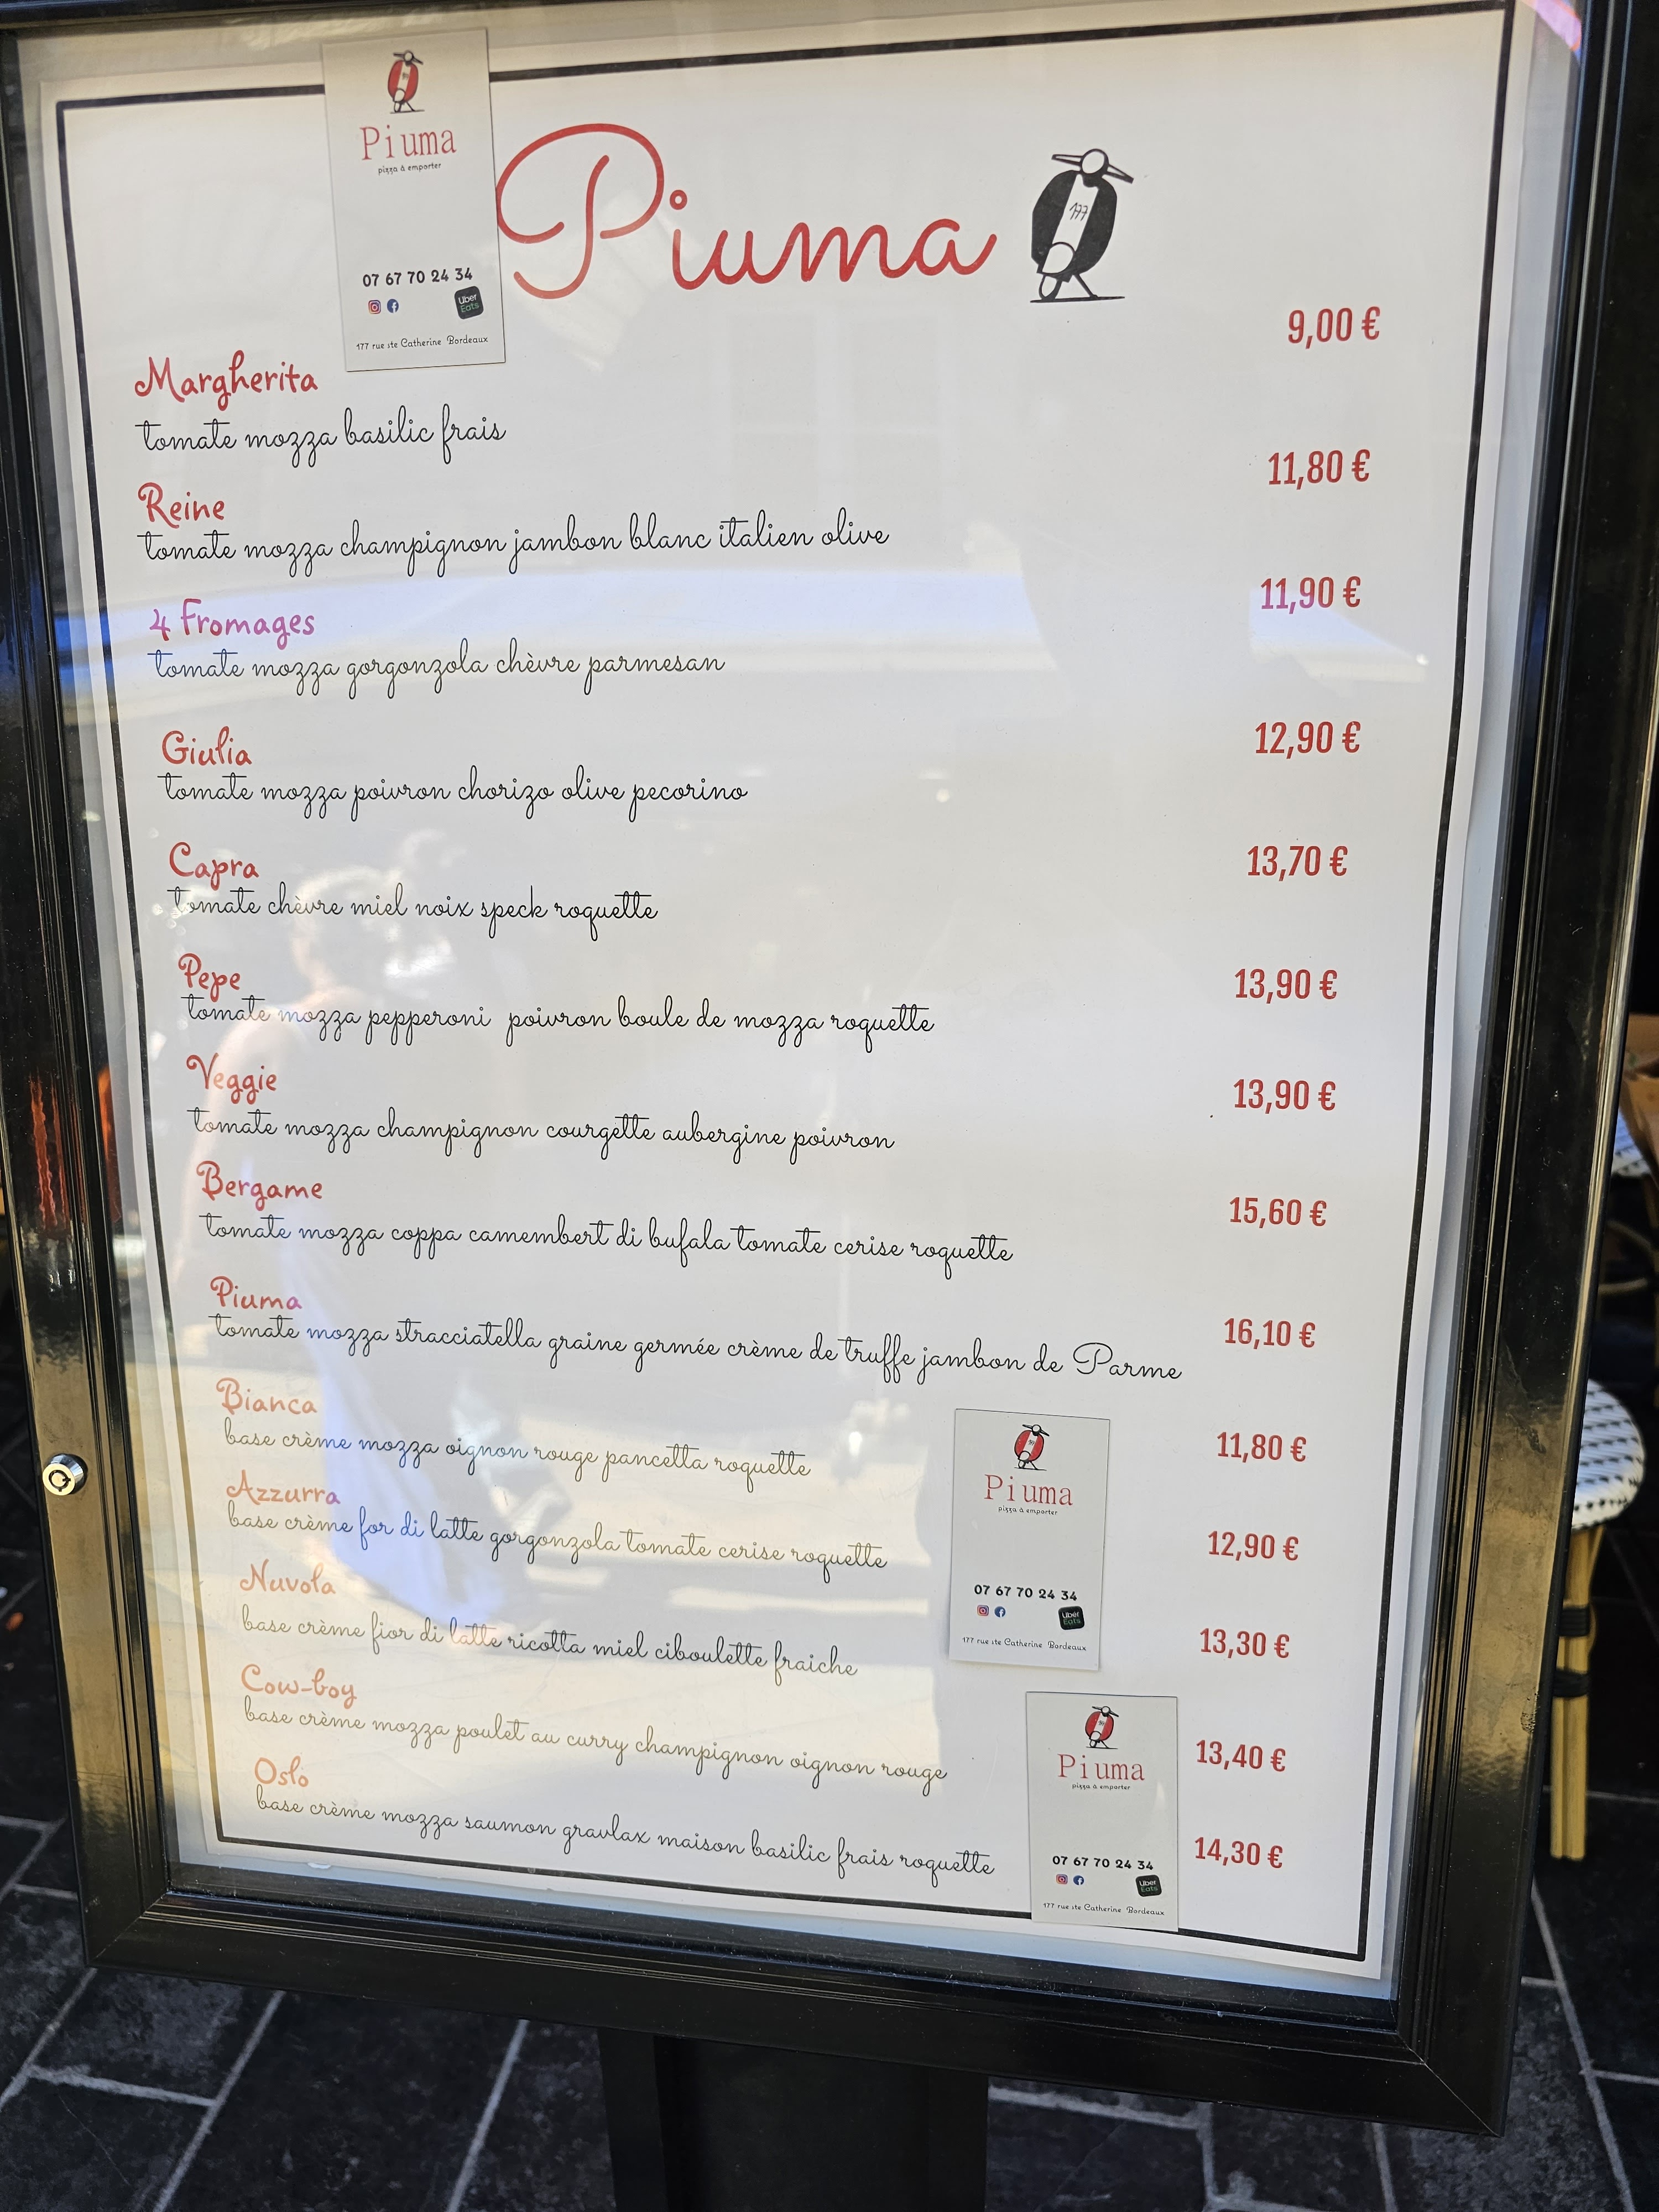 Piuma
pizza à emporter
07 67 70 24 34
Uber
Eats
177 rue ste Catherine Bordeaux
Piuma
177
Margherita 9,00 €
tomate mozza basilic frais
Reine 11,80 €
tomate mozza champignon jambon blanc italien olive
4 Fromages 11,90 €
tomate mozza gorgonzola chèvre parmesan
Giulia 12,90 €
tomate mozza poivron chorizo olive pecorino
Capra 13,70 €
tomate chèvre miel noix speck roquette
Pepe 13,90 €
tomate mozza pepperoni poivron boule de mozza roquette
Veggie 13,90 €
tomate mozza champignon courgette aubergine poivron
Bergame 15,60 €
tomate mozza coppa camembert di bufala tomate cerise roquette
Piuma 16,10 €
tomate mozza stracciatella graine germée crème de truffe jambon de Parme
Bianca 11,80 €
base crème mozza oignon rouge pancetta roquette
Azzurra 12,90 €
base crème for di latte gorgonzola tomate cerise roquette
Nuvola 13,30 €
base crème fior di latte ricotta miel ciboulette fraiche
Cow-boy 13,40 €
base crème mozza poulet au curry champignon oignon rouge
Oslo 14,30 €
base crème mozza saumon gravlax maison basilic frais roquette
Piuma
pizza à emporter
07 67 70 24 34
Uber
Eats
177 rue ste Catherine Bordeaux
Piuma
pizza à emporter
07 67 70 24 34
Uber
Eats
177 rue ste Catherine Bordeaux